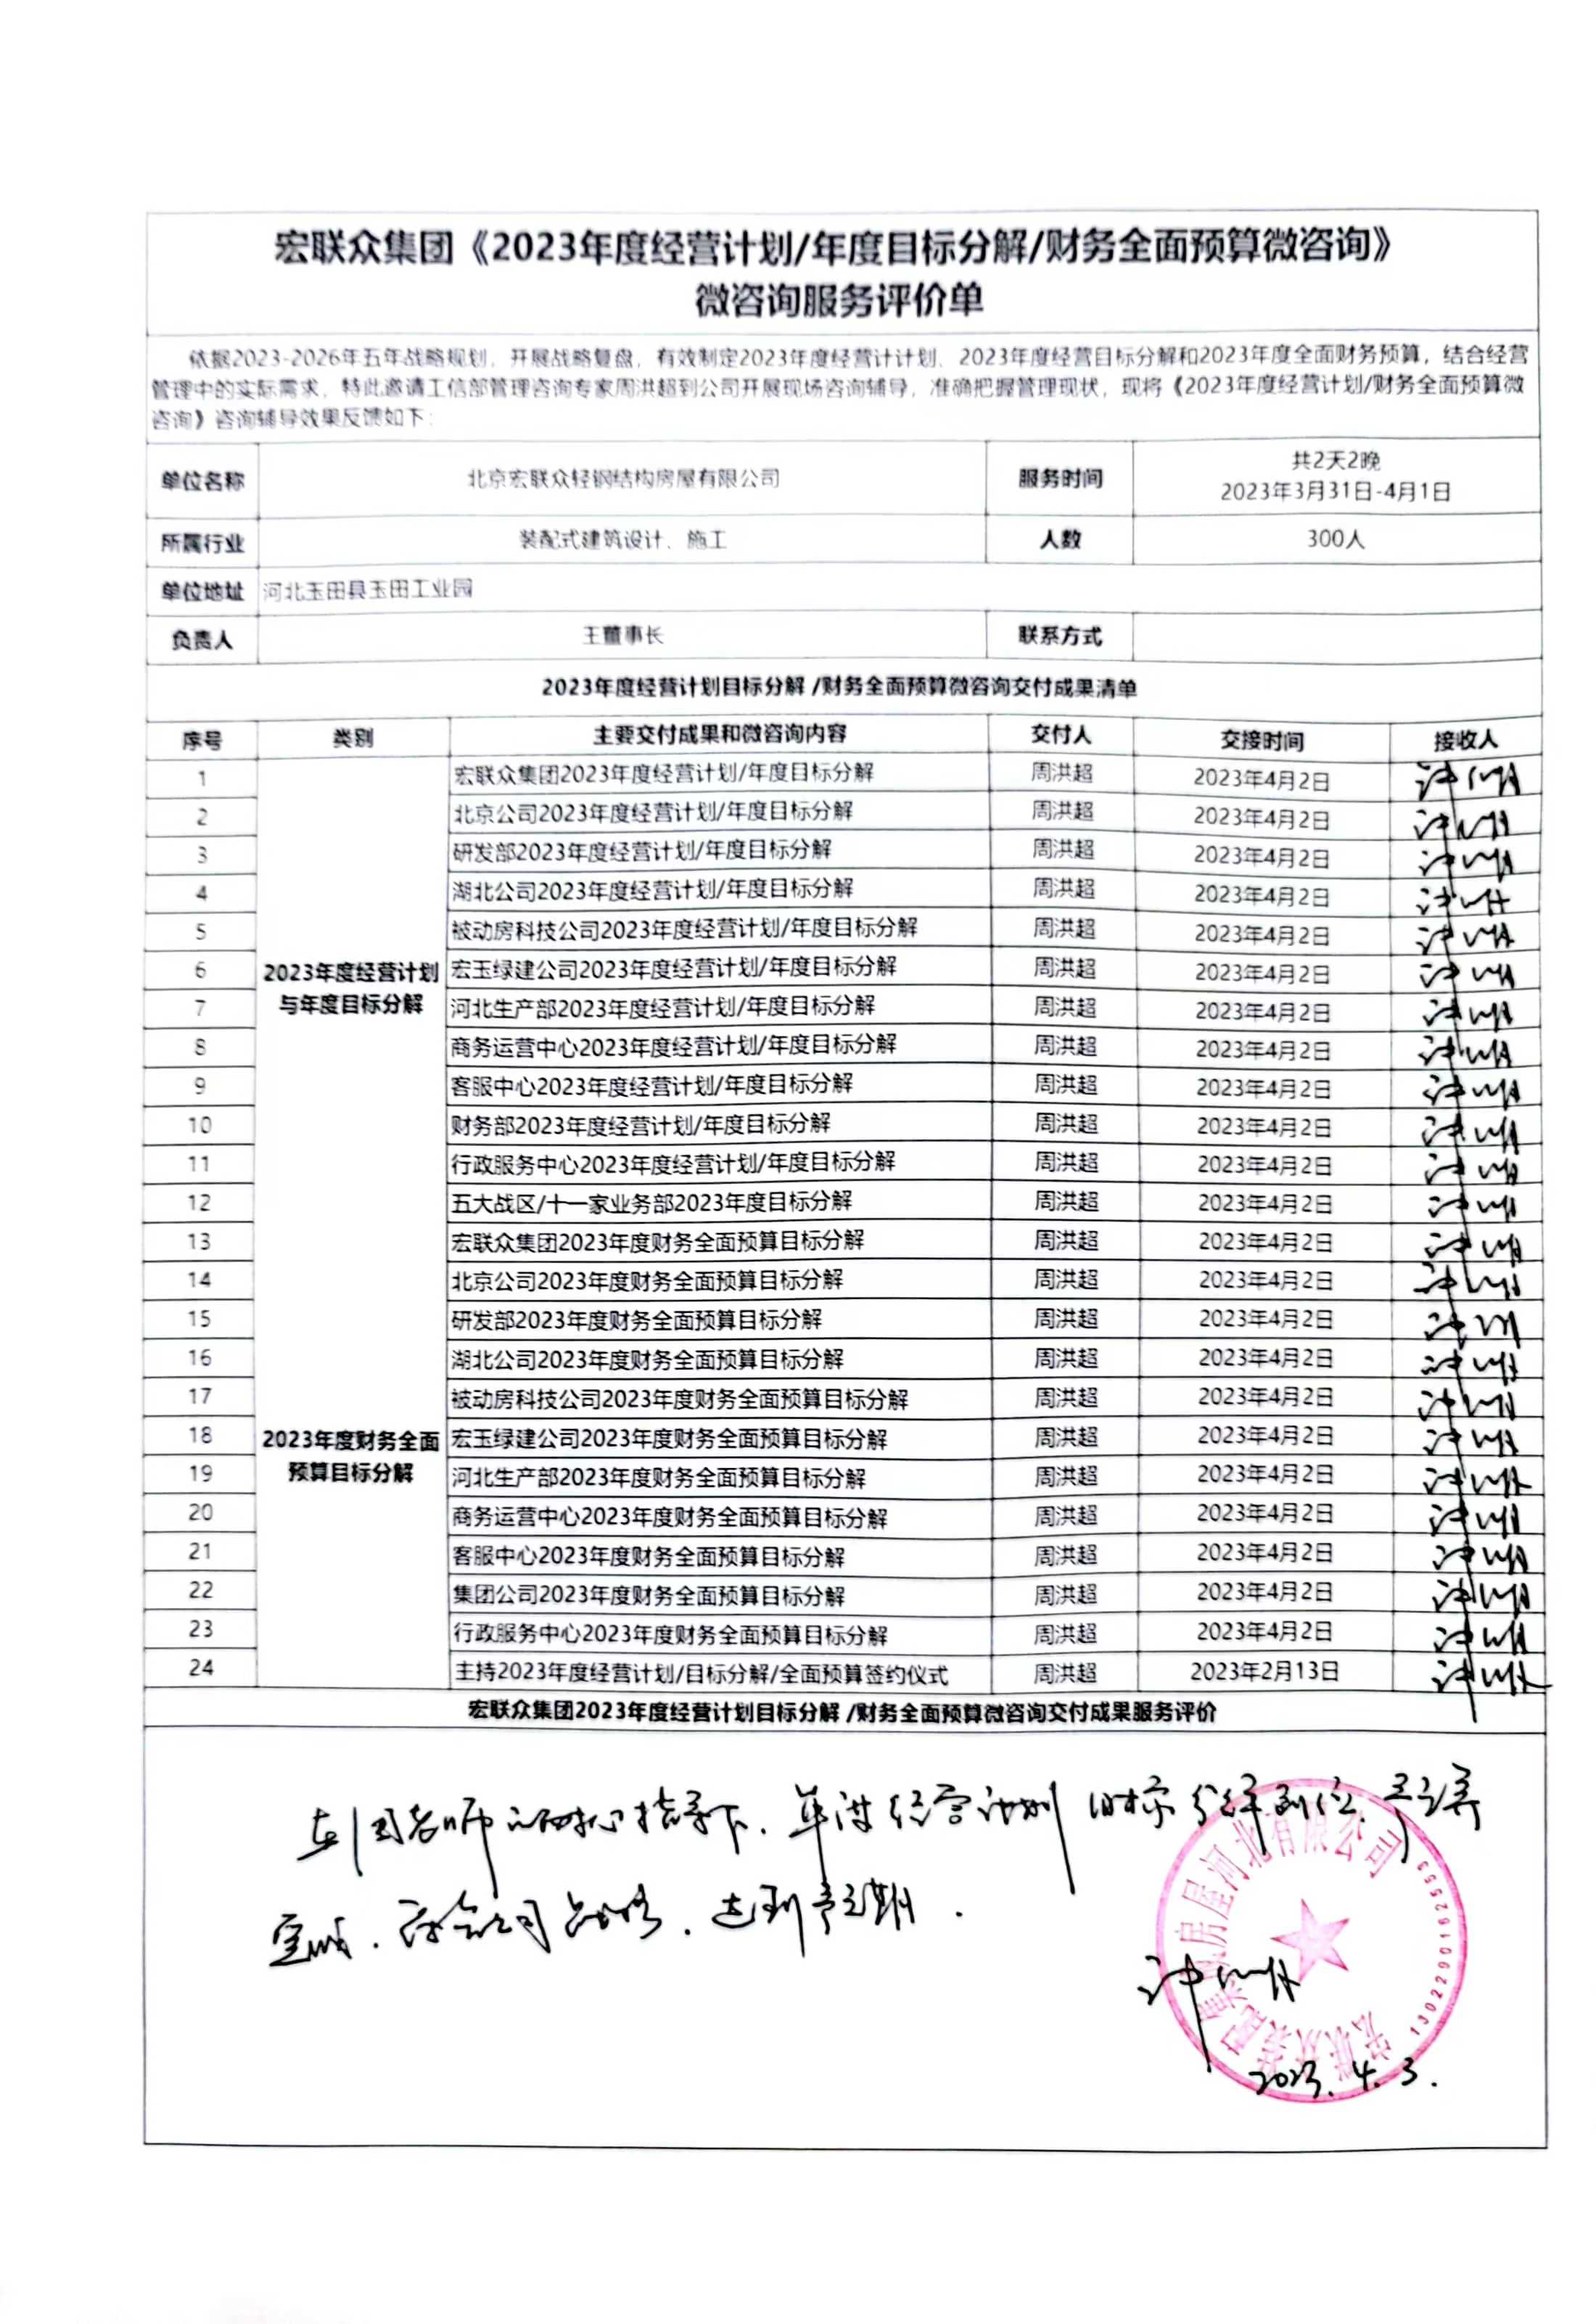 宏联众集团《2023年度经营计划/年度目标分解/财务全面预算微咨询》
微咨询服务评价单
依据2023-2026年五年战略规划，开展战略复盘，有效制定2023年度经营计计划、2023年度经营目标分解和2023年度全面财务预算，结合经营
管理中的实际需求，特此邀请工信部管理咨询专家周洪超到公司开展现场咨询辅导，准确把握管理现状，现将《2023年度经营计划/财务全面预算微
咨询》咨询辅导效果反馈如下：
单位名称 北京宏联众轻钢结构房屋有限公司 服务时间 共2天2晚
2023年3月31日-4月1日
所属行业 装配式建筑设计、施工 人数 300人
单位地址 河北玉田县玉田工业园
负责人 王董事长 联系方式
2023年度经营计划目标分解 /财务全面预算微咨询交付成果清单
序号 类别 主要交付成果和微咨询内容 交付人 交接时间 接收人
1 宏联众集团2023年度经营计划/年度目标分解 周洪超 2023年4月2日
2 北京公司2023年度经营计划/年度目标分解 周洪超 2023年4月2日
3 研发部2023年度经营计划/年度目标分解 周洪超 2023年4月2日
4 湖北公司2023年度经营计划/年度目标分解 周洪超 2023年4月2日
5 被动房科技公司2023年度经营计划/年度目标分解 周洪超 2023年4月2日
6 2023年度经营计划 宏玉绿建公司2023年度经营计划/年度目标分解 周洪超 2023年4月2日
7 与年度目标分解 河北生产部2023年度经营计划/年度目标分解 周洪超 2023年4月2日
8 商务运营中心2023年度经营计划/年度目标分解 周洪超 2023年4月2日
9 客服中心2023年度经营计划/年度目标分解 周洪超 2023年4月2日
10 财务部2023年度经营计划/年度目标分解 周洪超 2023年4月2日
11 行政服务中心2023年度经营计划/年度目标分解 周洪超 2023年4月2日
12 五大战区/十一家业务部2023年度目标分解 周洪超 2023年4月2日
13 宏联众集团2023年度财务全面预算目标分解 周洪超 2023年4月2日
14 北京公司2023年度财务全面预算目标分解 周洪超 2023年4月2日
15 研发部2023年度财务全面预算目标分解 周洪超 2023年4月2日
16 湖北公司2023年度财务全面预算目标分解 周洪超 2023年4月2日
17 被动房科技公司2023年度财务全面预算目标分解 周洪超 2023年4月2日
18 2023年度财务全面 宏玉绿建公司2023年度财务全面预算目标分解 周洪超 2023年4月2日
19 预算目标分解 河北生产部2023年度财务全面预算目标分解 周洪超 2023年4月2日
20 商务运营中心2023年度财务全面预算目标分解 周洪超 2023年4月2日
21 客服中心2023年度财务全面预算目标分解 周洪超 2023年4月2日
22 集团公司2023年度财务全面预算目标分解 周洪超 2023年4月2日
23 行政服务中心2023年度财务全面预算目标分解 周洪超 2023年4月2日
24 主持2023年度经营计划/目标分解/全面预算签约仪式 周洪超 2023年2月13日
宏联众集团2023年度经营计划目标分解 /财务全面预算微咨询交付成果服务评价
在周老师 指导下. 经营计划 目标分解到位.
公司战略. 达到预期.
房屋河北有限公司
宏联众装配
2023.4.3.